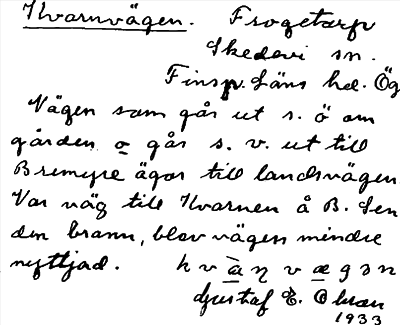 Kvarnvägen. Frogetorp
Skedevi sn.
Finsp. Läns hd. Ög
Vägen som går ut s. ö om
gården o går s. v. ut till
Bremyre ägor till landsvägen
Var väg till Kvarnen å B. Sen
den brann, blev vägen mindre
nyttjad. kvàn vægən
Gustaf E.
1933